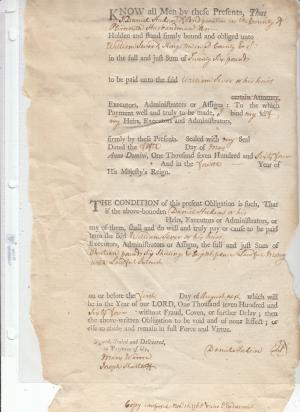 KNOW all Men by these Presents, That
I Daniel in the County of
Plimouth Husbandman Am
Holden and stand firmly bound and obliged unto
William Sever of Kingston County Esqr
in the full and just Sum of Twenty Six pounds
to be paid unto the said William Sever or his heirs
certain Attorney,
Executors, Administrators or Assigns: To the which
Payment well and truly to be made, I bind my self
my Heirs, Executors and Administrators,
firmly by these Presents. Sealed with my Seal
Dated the Day of May
Anno Domini, One Thousand seven Hundred and Sixty
And in the Year of
His Majesty's Reign.
THE CONDITION of this present Obligation is such, That
if the above-bounden Daniel or his
Heirs, Executors or Administrators, or
any of them, shall and do well and truly pay or cause to be paid
unto the said William Sever or his heirs
Executors, Administrators or Assigns, the full and just Sum of
Thirteen pounds Six Shillings & Eight pence Lawful Money
with Lawful Interest
on or before the Day of August next which will
be in the Year of our LORD, One Thousand seven Hundred and
Sixty without Fraud, Coven, or further Delay; then
the above-written Obligation to be void and of none Effect; or
else to abide and remain in full Force and Virtue.
Signed, Sealed and Delivered,
in Presence of Us,
Mary Warren
Daniel
Joseph
Copy